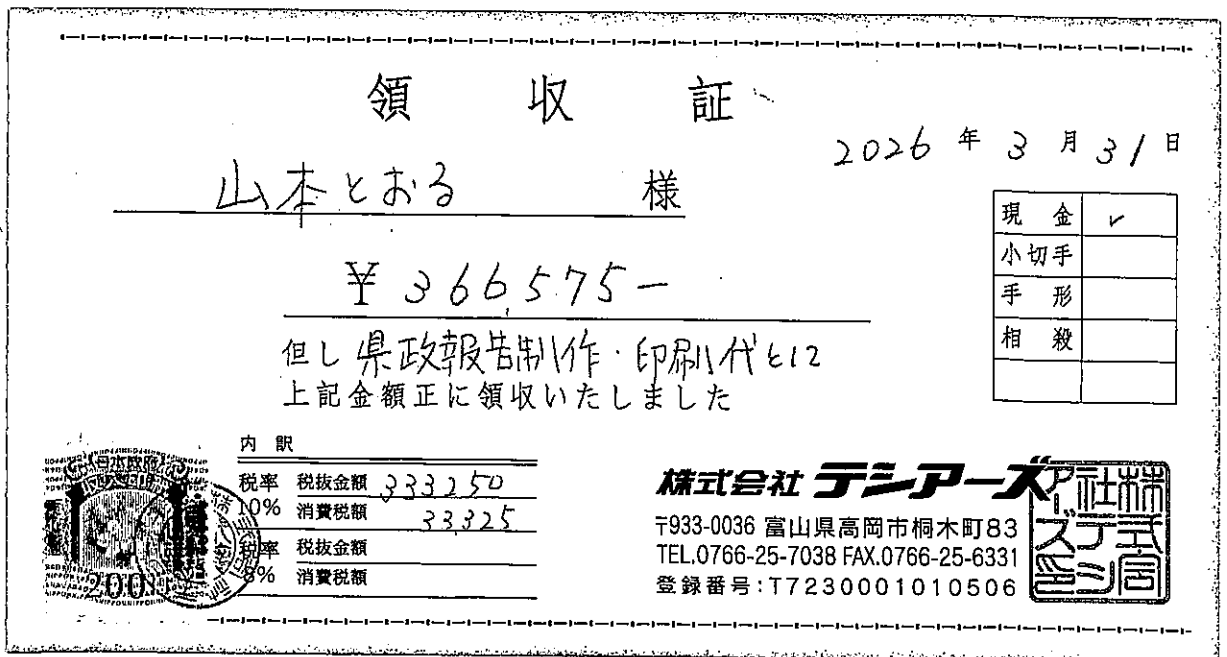 領 収 証
2026 年 3 月 31 日
山本とおる 様
¥366,575-
但し 県政報告制作・印刷代として
上記金額正に領収いたしました
現 金 ✓
小切手
手 形
相 殺
内 訳
税率 10% 税抜金額 333250
消費税額 33325
税率 8% 税抜金額
消費税額
日本政府
200
株式会社 テシアーズ
〒933-0036 富山県高岡市桐木町83
TEL.0766-25-7038 FAX.0766-25-6331
登録番号:T7230001010506
株式会社テシアーズ印